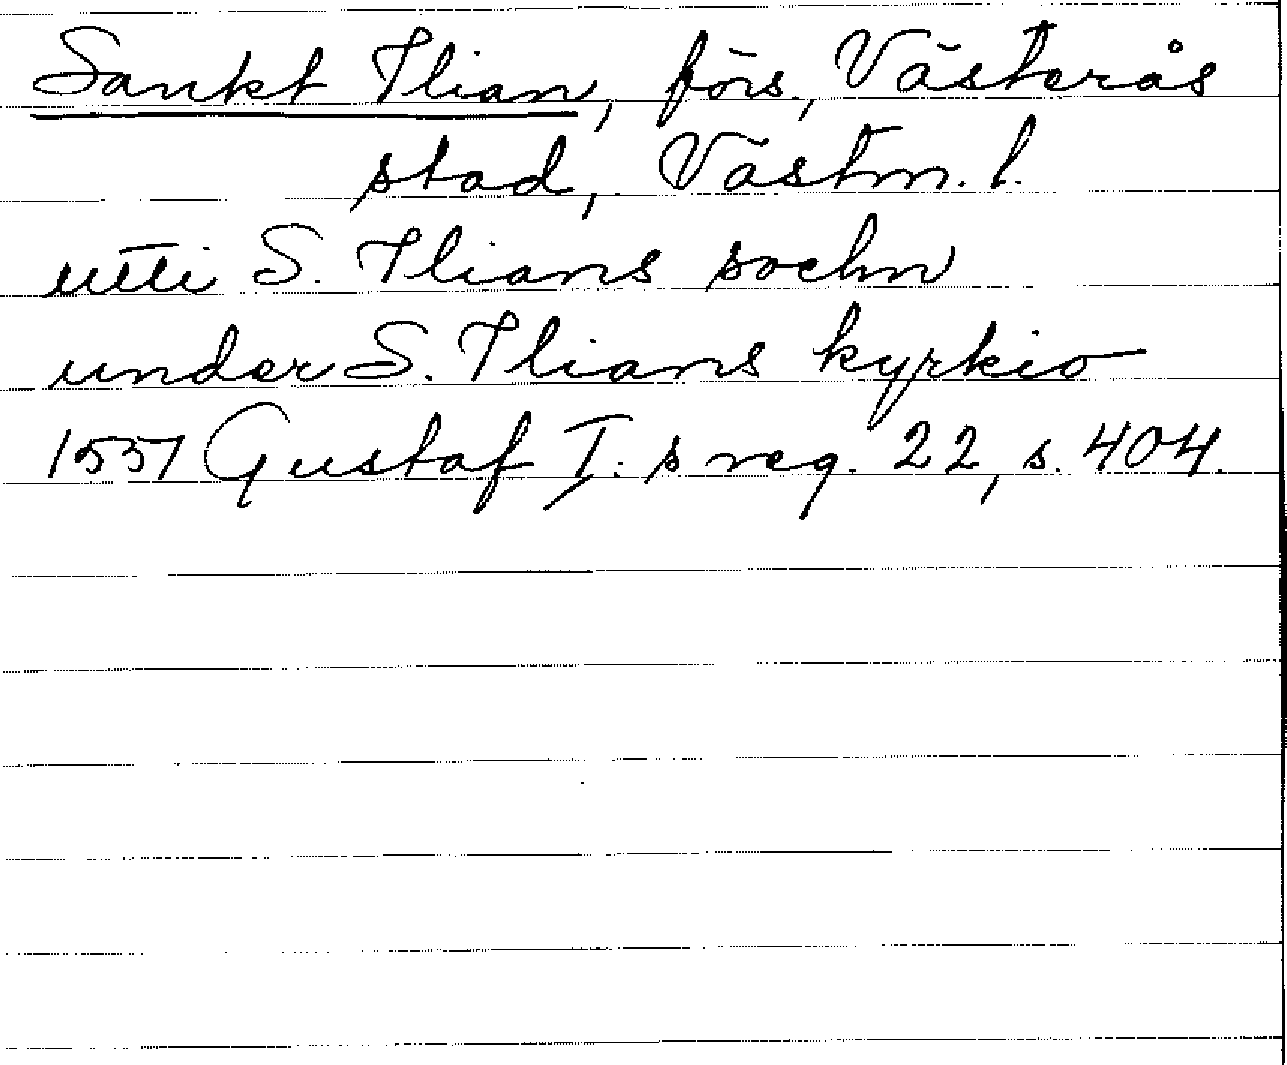 Sankt Ilian, förs., Västerås
stad, Västm. l.
utti S. Ilians sochn
under S. Ilians kyrkio
1551 Gustaf I:s reg. 22, s. 404.